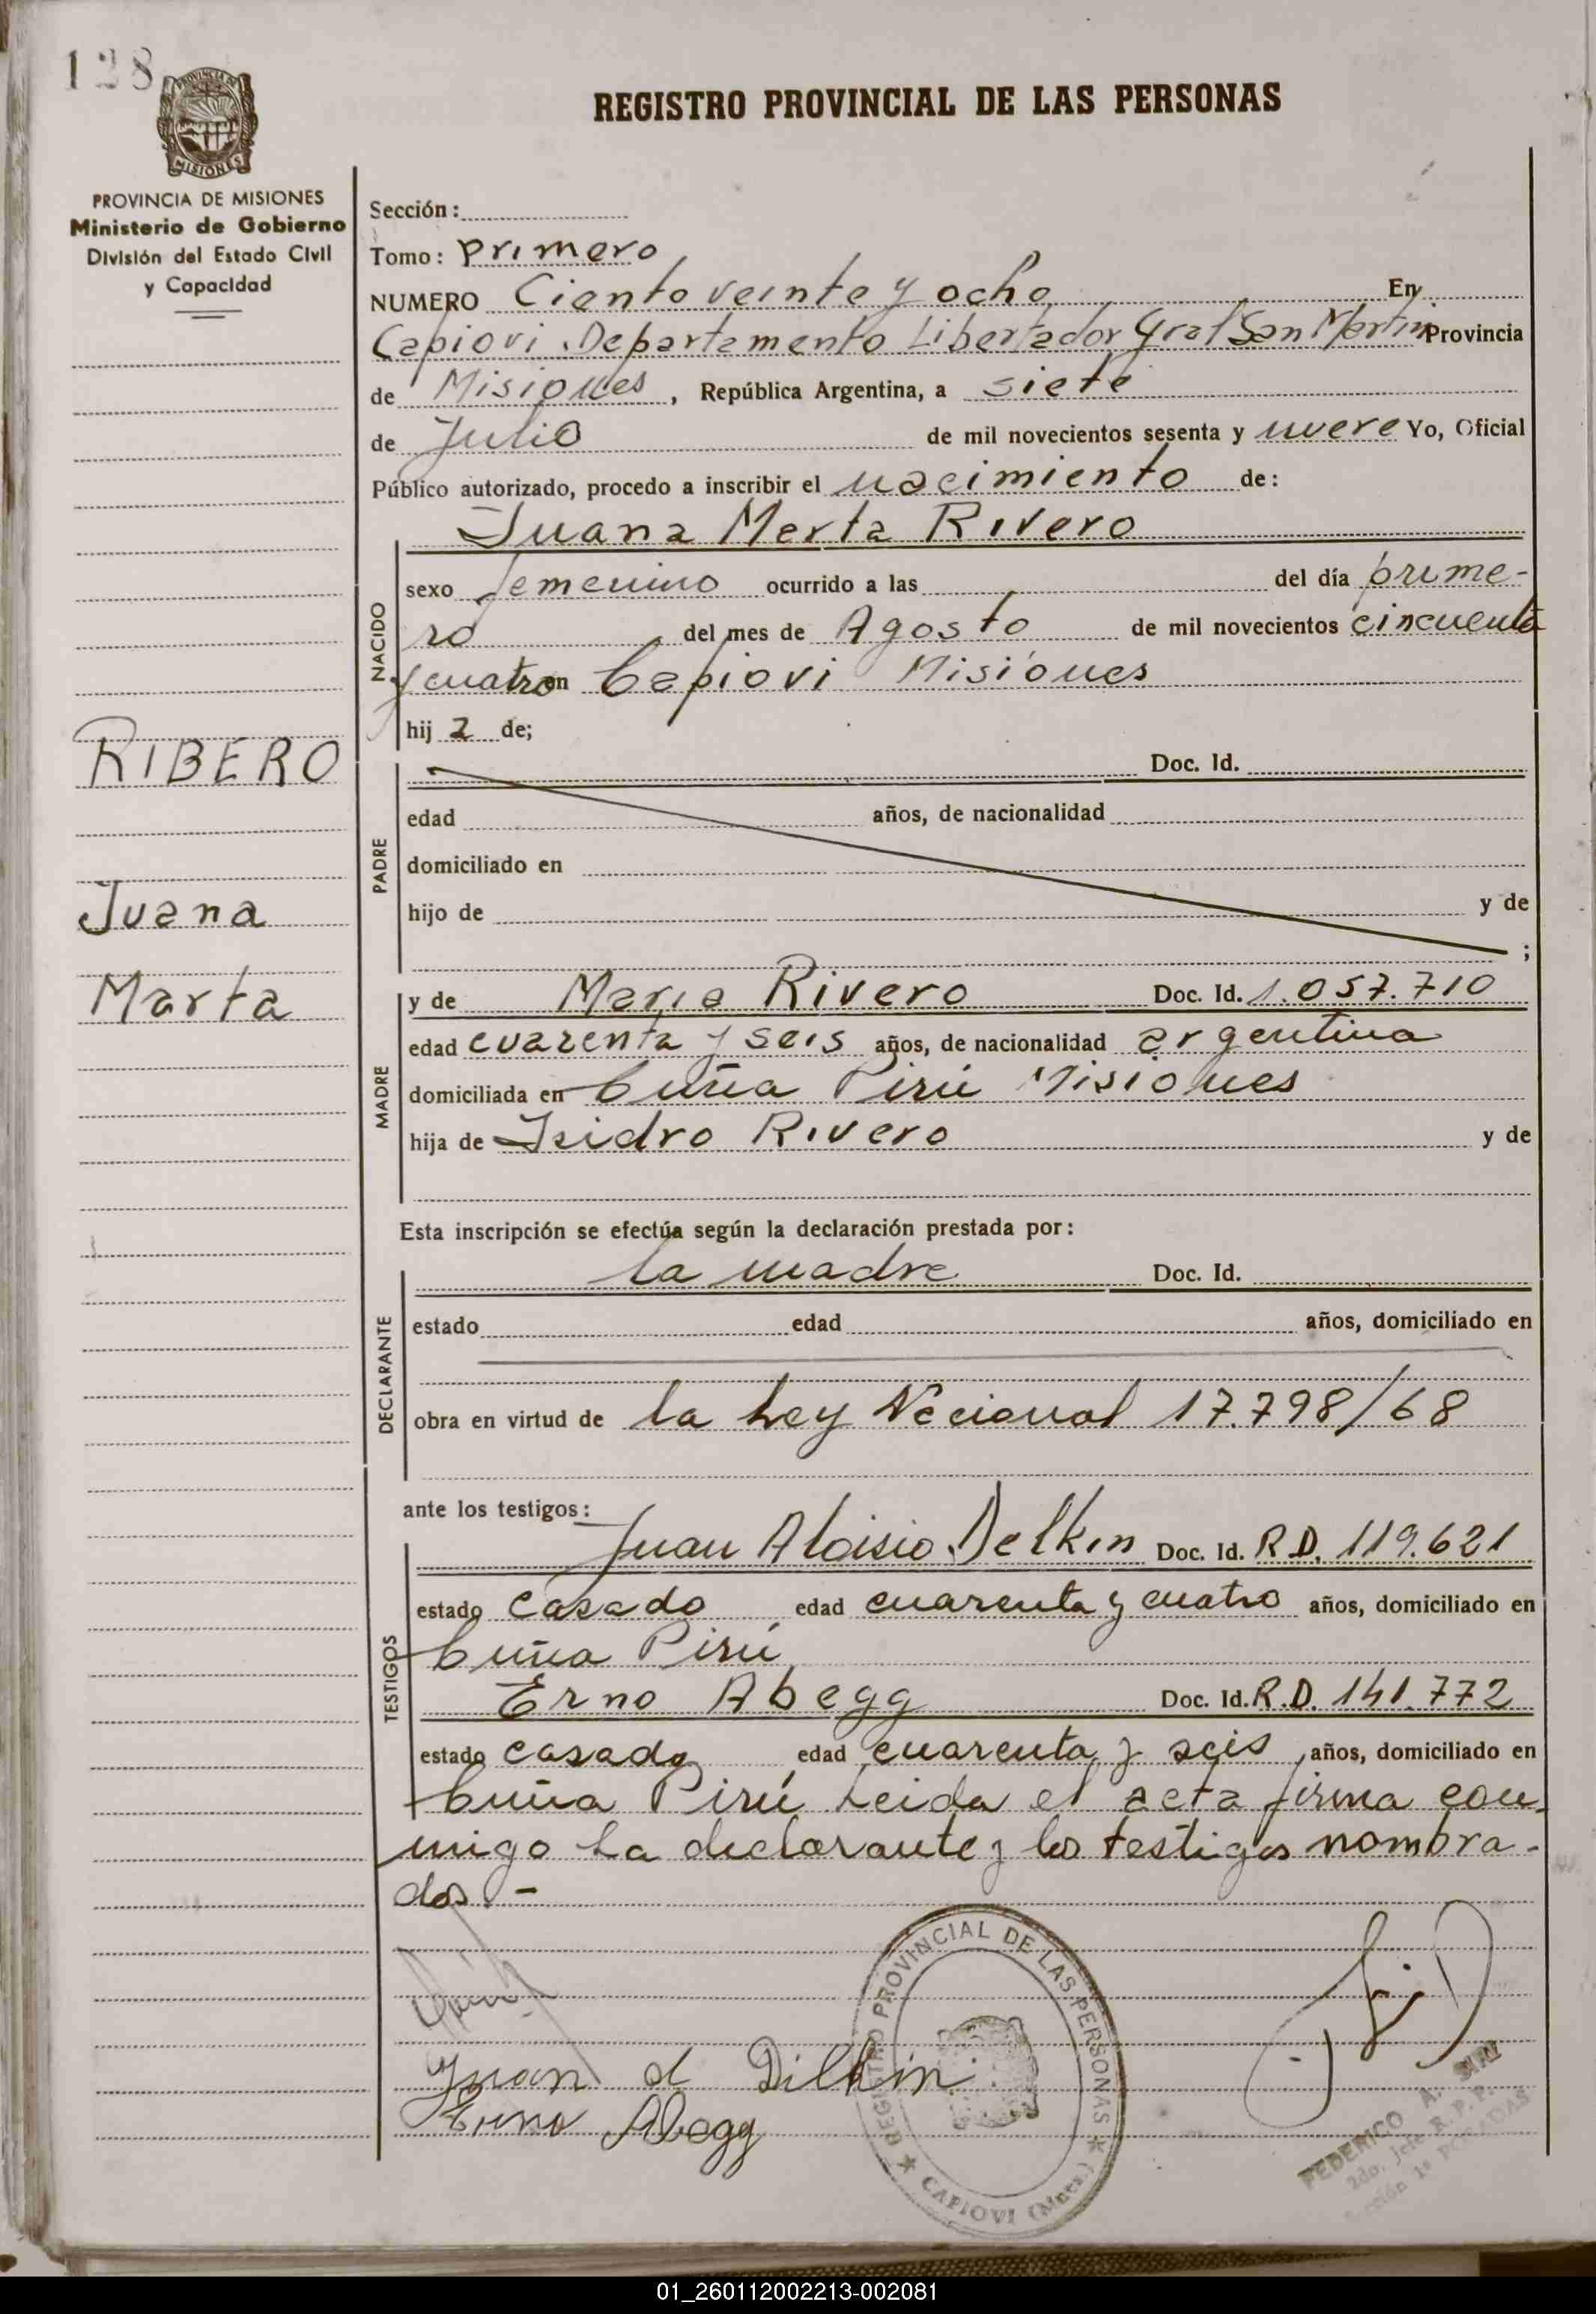 128
PROVINCIA DE MISIONES
Ministerio de Gobierno
División del Estado Civil
y Capacidad
RIBERO
Juana
Marta
REGISTRO PROVINCIAL DE LAS PERSONAS
Sección:
Tomo: Primero
NUMERO Ciento veinte y ocho En
Capiovi Departamento Libertador Gral San Martin Provincia
de Misiones, República Argentina, a siete
de Julio de mil novecientos sesenta y nueve Yo, Oficial
Público autorizado, procedo a inscribir el nacimiento de:
Juana Marta Rivero
NACIDO
sexo femenino ocurrido a las del día prime-
ro del mes de Agosto de mil novecientos cincuenta
y cuatro en Capiovi Misiones
hija de;
PADRE
Doc. Id.
edad años, de nacionalidad
domiciliado en
hijo de y de
;
MADRE
y de Maria Rivero Doc. Id. 1.057.710
edad cuarenta y seis años, de nacionalidad argentina
domiciliada en Cuña Pirú Misiones
hija de Isidro Rivero y de
Esta inscripción se efectúa según la declaración prestada por:
DECLARANTE
la madre Doc. Id.
estado edad años, domiciliado en
obra en virtud de la Ley Nacional 17.798/68
ante los testigos:
TESTIGOS
Juan Aloisio Delkin Doc. Id. R.D. 119.621
estado casado edad cuarenta y cuatro años, domiciliado en
Cuña Pirú
Erno Abegg Doc. Id. R.D. 141.772
estado casado edad cuarenta y seis años, domiciliado en
Cuña Pirú Leida el acta firma con-
migo La declarante y los testigos nombra-
dos.-
Juan A Dilkin
Erno Abegg
REGISTRO PROVINCIAL DE LAS PERSONAS
CAPIOVI (Mnes.)
FEDERICO A.
2do. Jefe R. P. P.
Sección 1ª POSADAS
01_260112002213-002081